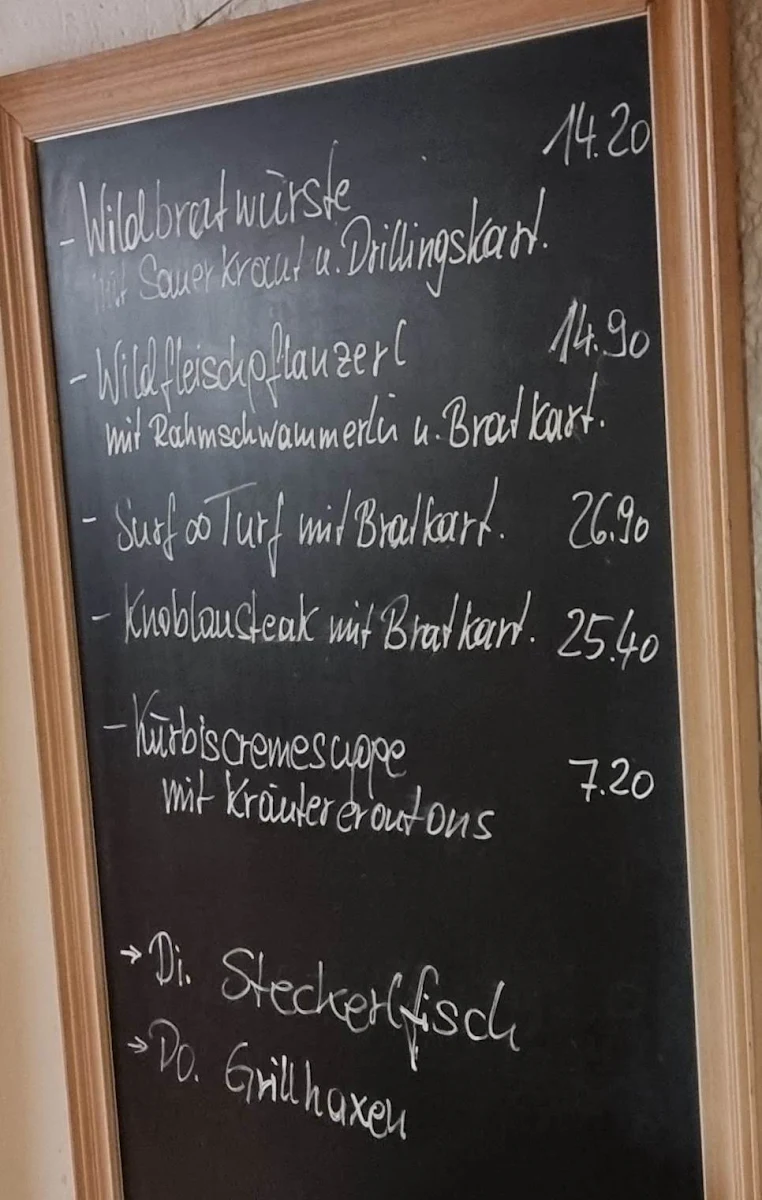 - Wildbratwürste 14.20
mit Sauerkraut u. Drillingskart.
- Wildfleischpflanzerl 14.90
mit Rahmschwammerln u. Bratkart.
- Surf & Turf mit Bratkart. 26.90
- Knoblausteak mit Bratkart. 25.40
- Kürbiscremesuppe
mit Kräutercroutons 7.20
→ Di. Steckerlfisch
→ Do. Grillhaxen